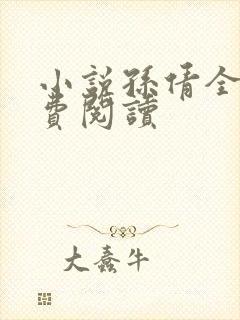 小説孫倩全
費閱讀
大蠢牛